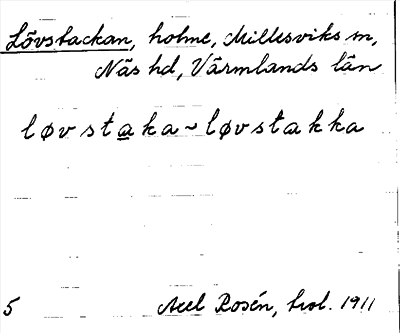 Lövstackan, holme, Millesviks sn,
Näs hd, Värmlands län
løvstaka ~ løvstakka
5 Axel Rosén, trol. 1911